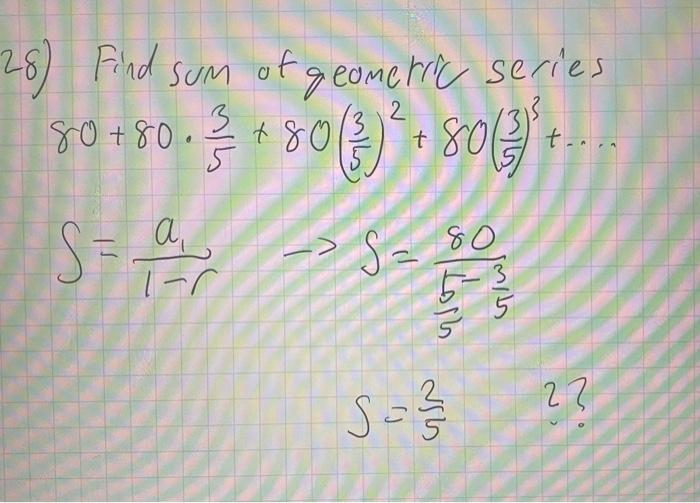 28) Find sum of geometric series
80 + 80 · 3/5 + 80(3/5)² + 80(3/5)³ + ....
S = a₁/(1-r) -> S = 80/(5/5 - 3/5)
S = 2/5 ??